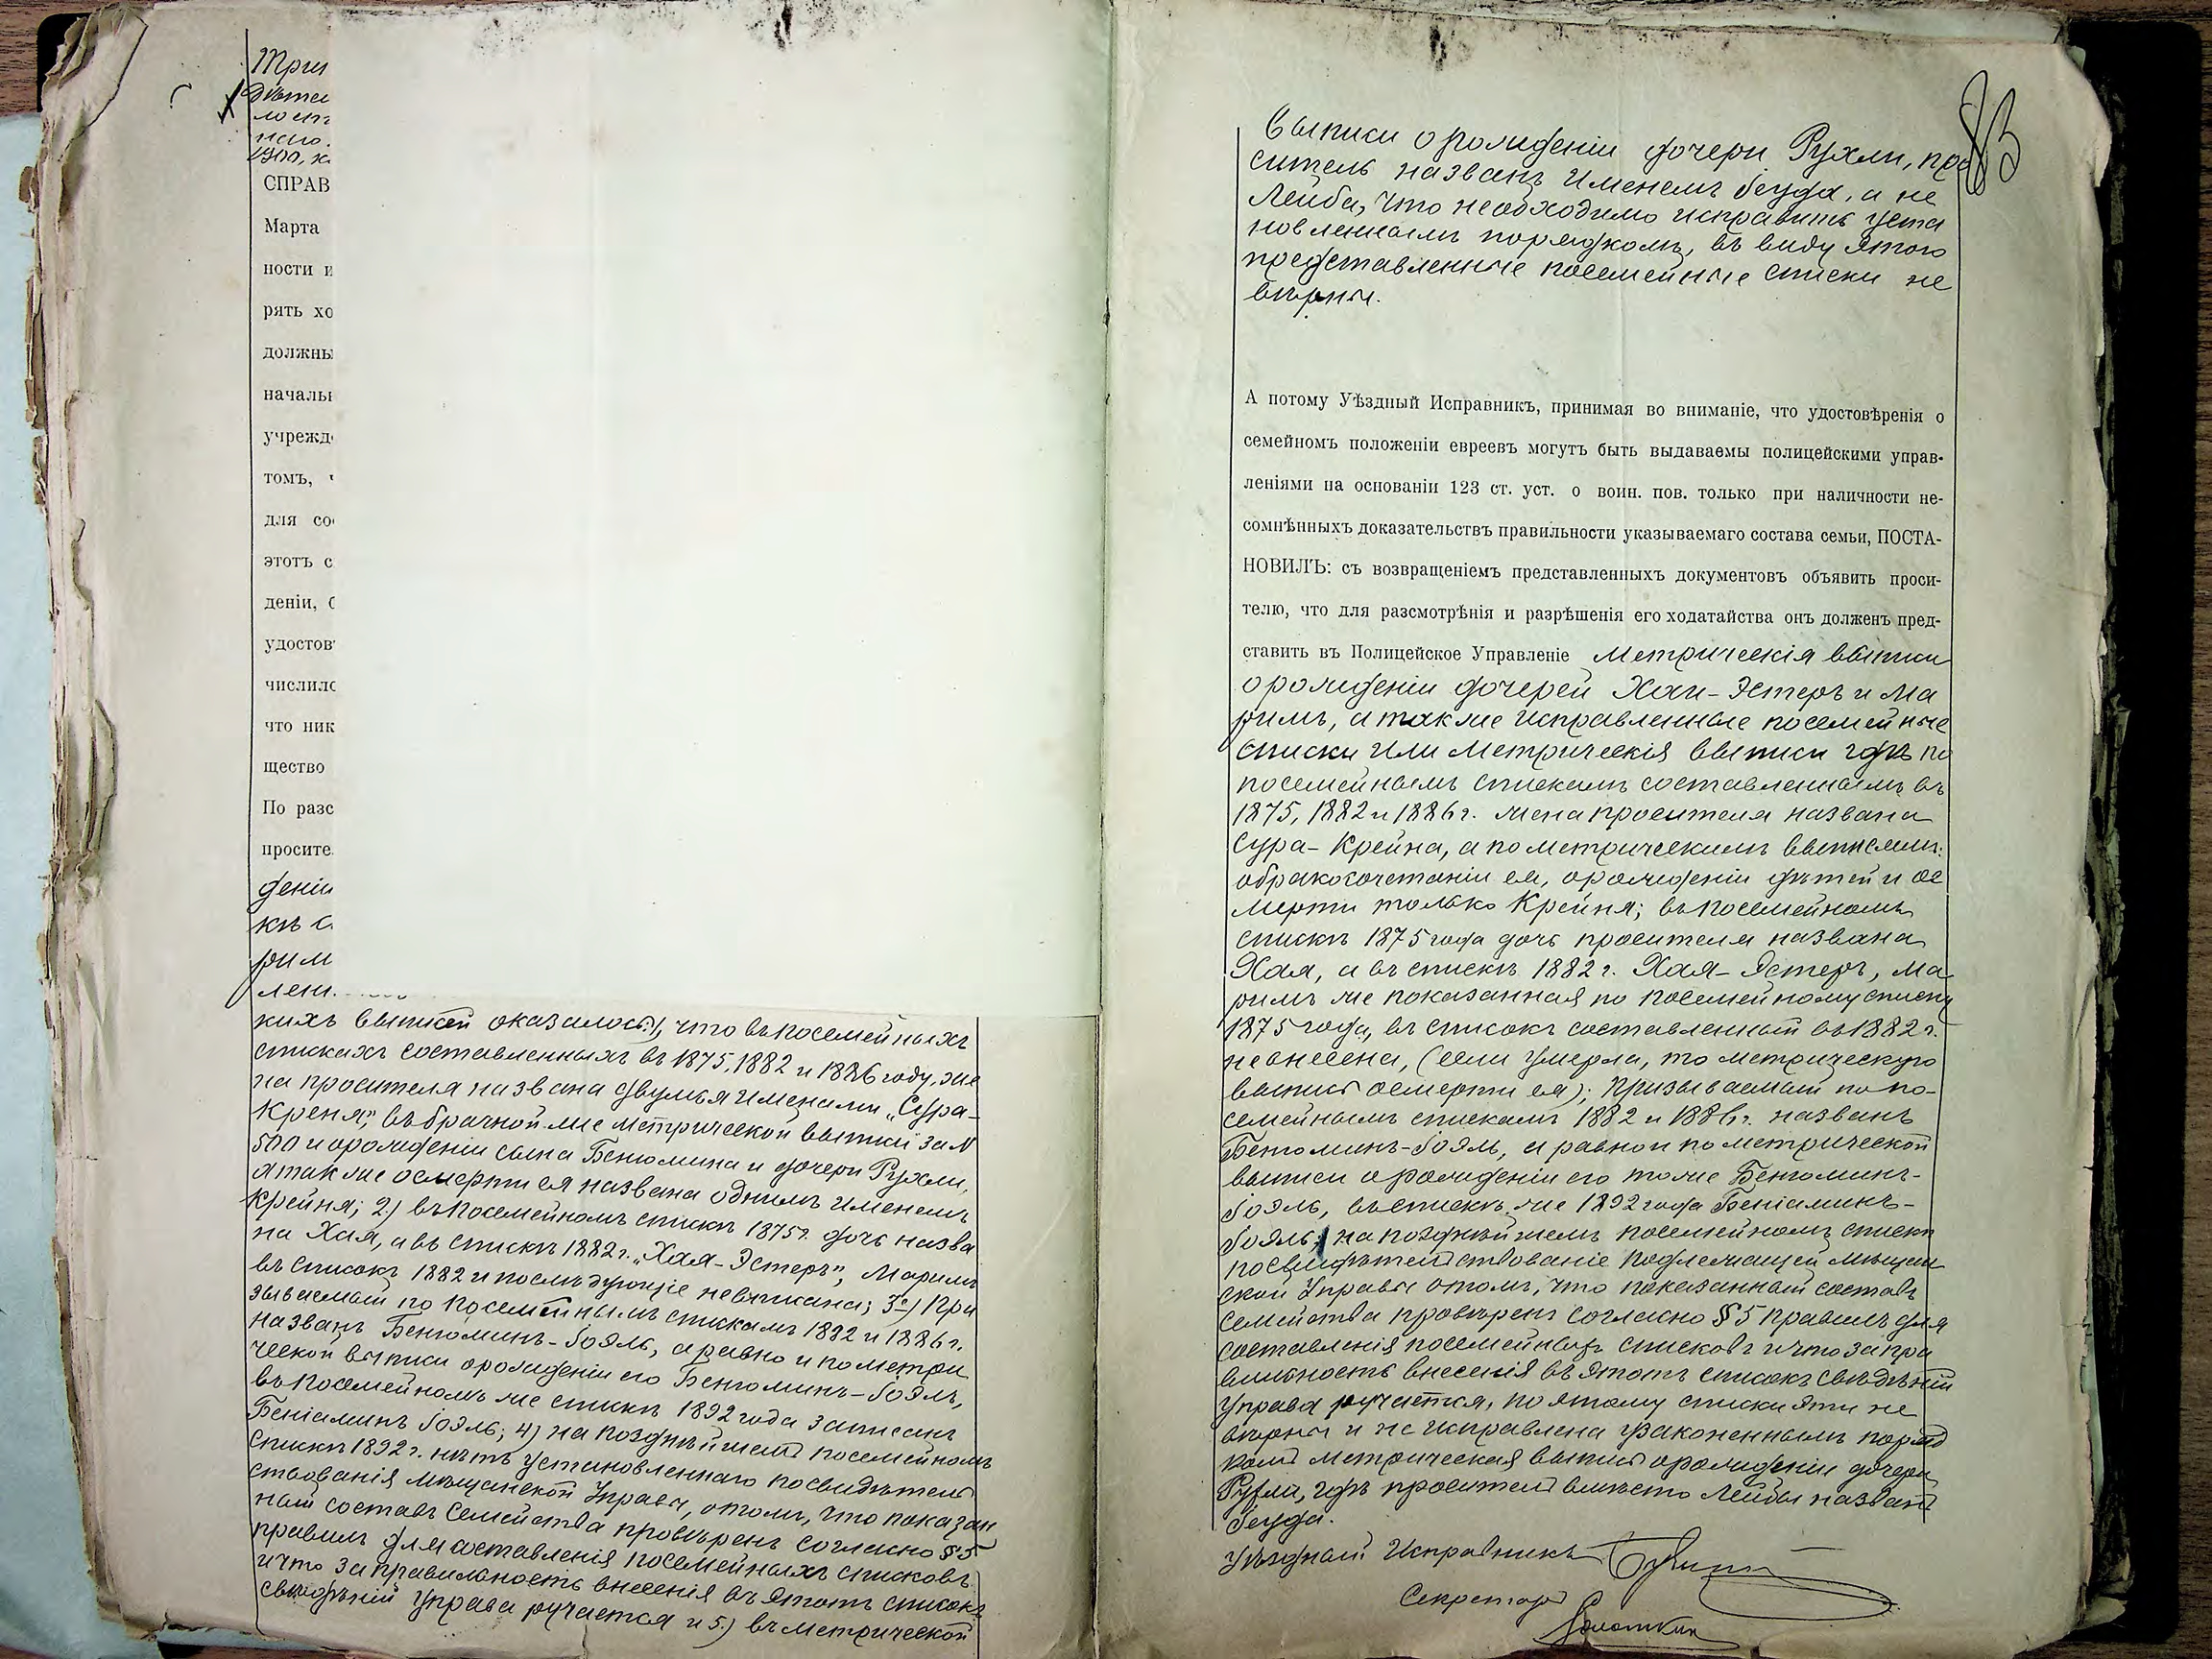 Три
дѣте
лост
1900, к
СПРАВ
Марта
ности и
рять хо
должны
началь
учрежд
томъ,
для со
этотъ с
деніи,
удостов
числило
что ник
щество
По разс
просите
деніи
къ с
рим
лен
кихъ выписей оказалось: 1), что въ посемейныхъ
спискахъ составленныхъ въ 1875, 1882 и 1886 году, же
на просителя названа двумя именами „Сура-
Креня", въ брачной же метрической выписи за №
500 и о рожденіи сына Бенюмина и дочери Рухли,
а также о смерти ея названа однимъ именемъ
Крейня; 2) въ посемейномъ спискѣ 1875 г. дочь назва
на Хая, а въ спискѣ 1882 г. „Хая-Эстеръ", Маримъ
въ списокъ 1882 и послѣдующіе невписана; 3) При
зываемый по посемейнымъ спискамъ 1882 и 1886 г.
названъ Бенюминъ-Іоэль, а равно и по метри
ческой выписи о рожденіи его Бенюминъ-Іоэль,
въ посемейномъ же спискѣ 1892 года записанъ
Беніаминъ Іоэль; 4) на позднѣйшемъ посемейномъ
спискѣ 1892 г. нѣтъ установленнаго посвидѣтель
ствованія мѣщанской Управы, о томъ, что показан
ный составъ семейства провѣренъ согласно § 5
правилъ для составленія посемейныхъ списковъ
и что за правильность внесенія въ этотъ списокъ
свѣдѣній Управа ручается и 5.) въ метрической
83
выписи о рожденіи дочери Рухли, про
ситель названъ именемъ Іегуда, а не
Лейба, что необходимо исправить уста
новленнымъ порядкомъ, въ виду этого
представленные посемейные списки не
вѣрны.
А потому Уѣздный Исправникъ, принимая во вниманіе, что удостовѣренія о
семейномъ положеніи евреевъ могутъ быть выдаваемы полицейскими управ-
леніями на основаніи 123 ст. уст. о воин. пов. только при наличности не-
сомнѣнныхъ доказательствъ правильности указываемаго состава семьи, ПОСТА-
НОВИЛЪ: съ возвращеніемъ представленныхъ документовъ объявить проси-
телю, что для разсмотрѣнія и разрѣшенія его ходатайства онъ долженъ пред-
ставить въ Полицейское Управленіе метрическія выписи
о рожденіи дочерей Хаи-Эстеръ и Ма
римъ, а также исправленные посемейные
списки или метрическія выписи гдѣ по
посемейнымъ спискамъ составленнымъ въ
1875, 1882 и 1886 г. жена просителя названа
Сура-Крейна, а по метрическимъ выписямъ:
о бракосочетаніи ея, о рожденіи дѣтей и ос
мерти только Крейня; въ посемейномъ
спискѣ 1875 года дочь просителя названа
Хая, а въ спискѣ 1882 г. Хая-Эстеръ, Ма
римъ же показанная по посемейному списку
1875 года, въ списокъ составленный въ 1882 г.
не внесена, (если умерла, то метрическую
выпись о смерти ея); призываемый по по-
семейнымъ спискамъ 1882 и 1886 г. названъ
Бенюминъ-Іоэль, а равно и по метрической
выписи о рожденіи его тоже Бенюминъ-
Іоэль, въ спискѣ же 1892 года Беніаминъ-
Іоэль; на позднѣйшемъ посемейномъ списки
посвидѣтельствованіе подлежащей мѣщан
ской Управы о томъ, что показанный составъ
семейства провѣренъ согласно § 5 правилъ для
составленія посемейныхъ списковъ и что за пра
вильность внесенія въ этотъ списокъ свѣдѣній
Управа ручается, по этому списки эти не
вѣрны и не исправлена узаконеннымъ поряд
комъ метрическая выпись о рожденіи дочери
Рухли, гдѣ проситель вмѣсто Лейбы названъ
Іегуда.
Уѣздный Исправникъ
Секретарь